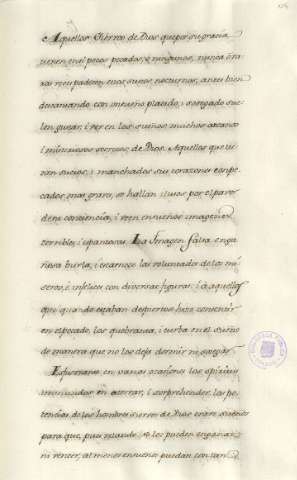 Aquellos Siervos de Dios que por su gracia
tienen en si pocos pecados, o ningunos, nunca o ra
ras vezes padecen esos sueños nocturnos, antes bien
descansando con un sueño placido, i sosegado sue
len gustar, i ver en los sueños muchos arcanos
i misteriosos secretos de Dios. Aquellos que tie
nen sucios, i manchados sus corazones con pe
cados mas graves, se hallan
de su conciencia, i veen en sueños imagenes
terribles, i espantosas. La Imagen falsa enga
ñosa burla, i escarnece las voluntades de los mi
seros, e infelices con diversas figuras. i a aquellos
que quando estaban despiertos hizo consentir
en el pecado, los quebranta, i turba en el sueño
de manera que no los deja dormir ni sosegar.
en varias ocasiones los espiritus
inmundos en aterrar, i sorprehender las po
tencias de los hombres siervos de Dios entre sueños
para que, pues quando no les pueden engañar
ni vencer, al menos en sueños puedan con van